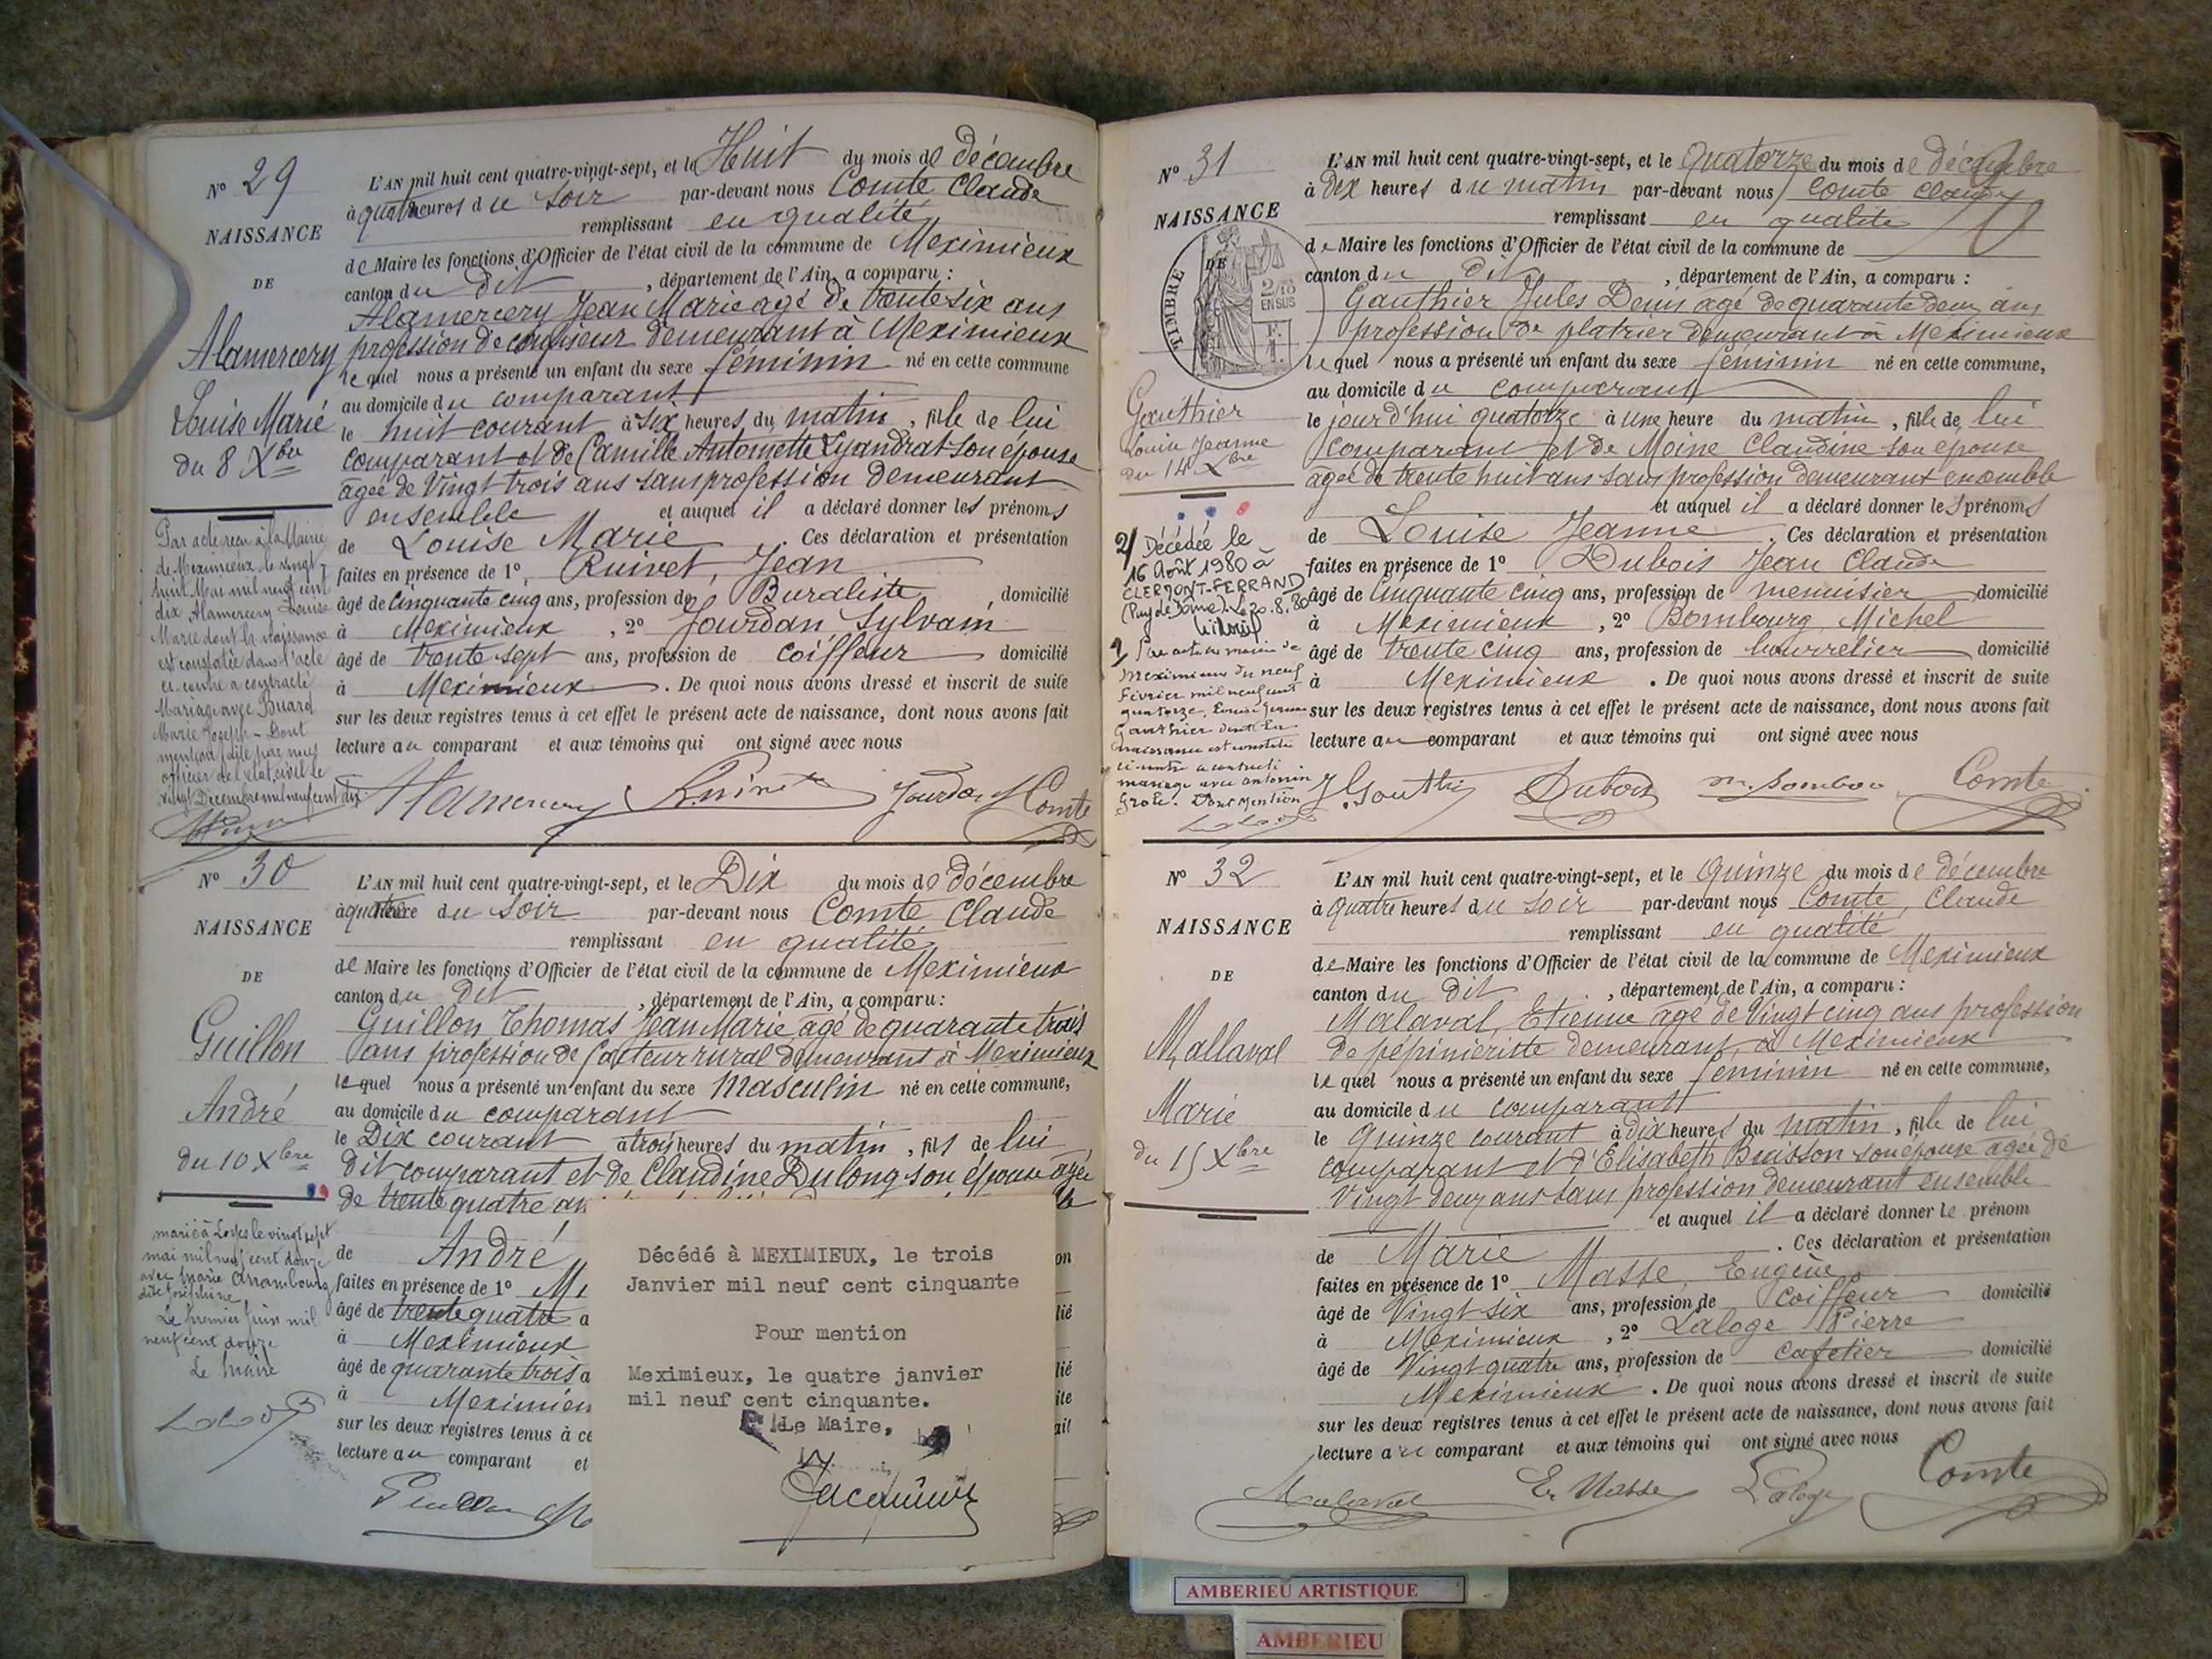 N° 29
NAISSANCE
DE
Alamercery
Louise Marie
du 8 Xbre
L'AN mil huit cent quatre-vingt-sept, et le Huit du mois de décembre
à quatre heures du soir par-devant nous Comte Claude
remplissant en qualité
de Maire les fonctions d'Officier de l'état civil de la commune de Meximieux
canton du dit, département de l'Ain, a comparu :
Alamercery Jean Marie agé de trente six ans
profession de demeurant à Meximieux
lequel nous a présenté un enfant du sexe féminin né en cette commune
au domicile du comparant
le huit courant à six heures du matin, fille de lui
comparant et de Camille Antoinette Lyandrat son épouse
agée de Vingt trois ans sans profession demeurant
ensemble et auquel il a déclaré donner les prénoms
de Louise Marie. Ces déclaration et présentation
faites en présence de 1° Ruivet, Jean
âgé de Cinquante cinq ans, profession de Buraliste domicilié
à Meximieux, 2° Jourdan Sylvain
âgé de trente sept ans, profession de coiffeur domicilié
à Meximieux. De quoi nous avons dressé et inscrit de suite
sur les deux registres tenus à cet effet le présent acte de naissance, dont nous avons fait
lecture au comparant et aux témoins qui ont signé avec nous
Alamercery Ruivet Jourdan Comte
Par acte reçu à la Mairie
de Meximieux le vingt-
huit Mai mil neuf cent
dix Alamercery Louise
Marie dont la naissance
est constatée dans l'acte
ci-contre a contracté
Mariage avec Buard
Marie Joseph - Dont
mention faite par nous
officier de l'état civil le
vingt Décembre mil neuf cent dix
N° 30
NAISSANCE
DE
Guillon
André
du 10 Xbre
L'AN mil huit cent quatre-vingt-sept, et le Dix du mois de décembre
à quatre heure du soir par-devant nous Comte Claude
remplissant en qualité
de Maire les fonctions d'Officier de l'état civil de la commune de Meximieux
canton du dit, département de l'Ain, a comparu :
Guillon Thomas Jean Marie agé de quarante trois
ans profession de facteur rural demeurant à Meximieux
lequel nous a présenté un enfant du sexe masculin né en cette commune,
au domicile du comparant
le Dix courant à trois heures du matin, fils de lui
dit comparant et de Claudine Dulong son épouse agée
de trente quatre an
de André
faites en présence de 1°
âgé de trente quatre a
à Meximieux
âgé de quarante trois a
à Meximieu
sur les deux registres tenus à ce
lecture au comparant et
Guillon
marié à Loyes le vingt sept
mai mil neuf cent douze
avec Marie Arrambourg
dite Joséphine
Le premier Juin mil
neuf cent douze
Le Maire
Décédé à MEXIMIEUX, le trois
Janvier mil neuf cent cinquante
Pour mention
Meximieux, le quatre janvier
mil neuf cent cinquante.
Le Maire,
N° 31
NAISSANCE
DE
TIMBRE
2/10
EN SUS
Gauthier
Louise Jeanne
du 14 Xbre
L'AN mil huit cent quatre-vingt-sept, et le Quatorze du mois de décembre
à Dix heures du matin par-devant nous Comte Claude
remplissant en qualité
de Maire les fonctions d'Officier de l'état civil de la commune de
canton du dit, département de l'Ain, a comparu :
Gauthier Jules Denis agé de quarante deux ans
profession de platrier demeurant à Meximieux
lequel nous a présenté un enfant du sexe féminin né en cette commune,
au domicile du comparant
le jourd'hui quatorze à une heure du matin, fille de lui
comparant et de Moine Claudine son épouse
agée de trente huit ans sans profession demeurant ensemble
et auquel il a déclaré donner les prénoms
de Louise Jeanne. Ces déclaration et présentation
faites en présence de 1° Dubois Jean Claude
âgé de Cinquante cinq ans, profession de menuisier domicilié
à Meximieux, 2° Bombourg Michel
âgé de trente cinq ans, profession de bourrelier domicilié
à Meximieux. De quoi nous avons dressé et inscrit de suite
sur les deux registres tenus à cet effet le présent acte de naissance, dont nous avons fait
lecture au comparant et aux témoins qui ont signé avec nous
J. Gauthier Dubois M. Bombou Comte
2/ Décédée le
16 Août 1980 à
CLERMONT-FERRAND
(Puy de Dôme). Le 20.8.80
1/ Par acte de mairie de
Meximieux du neuf
Février mil neuf cent
quatorze, Louise Jeanne
Gauthier dont la
naissance est constatée
ci-contre a contracté
mariage avec Antonin
Dont Mention
N° 32
NAISSANCE
DE
Mallaval
Marie
du 15 Xbre
L'AN mil huit cent quatre-vingt-sept, et le Quinze du mois de décembre
à Quatre heures du soir par-devant nous Comte, Claude
remplissant en qualité
de Maire les fonctions d'Officier de l'état civil de la commune de Meximieux
canton du dit, département de l'Ain, a comparu :
Malaval, Etienne agé de Vingt cinq ans profession
de pépinieriste demeurant à Meximieux
lequel nous a présenté un enfant du sexe féminin né en cette commune,
au domicile du comparant
le Quinze courant à dix heures du matin, fille de lui
comparant et d'Elisabeth Buisson son épouse agée de
Vingt deux ans sans profession demeurant ensemble
et auquel il a déclaré donner le prénom
de Marie. Ces déclaration et présentation
faites en présence de 1° Masse, Eugène
âgé de Vingt six ans, profession de coiffeur domicilié
à Meximieux, 2° Laloge Pierre
âgé de Vingt quatre ans, profession de cafetier domicilié
Meximieux. De quoi nous avons dressé et inscrit de suite
sur les deux registres tenus à cet effet le présent acte de naissance, dont nous avons fait
lecture au comparant et aux témoins qui ont signé avec nous
Malaval E. Masse Laloge Comte
AMBERIEU ARTISTIQUE
AMBERIEU